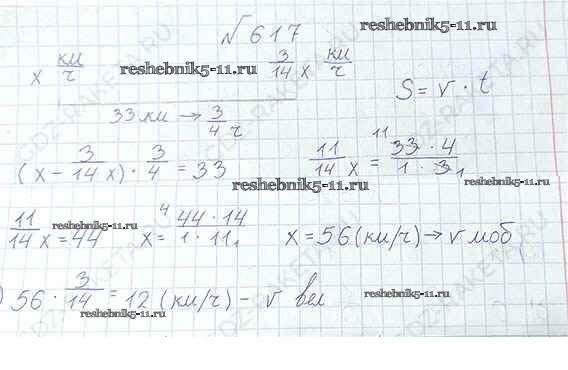 №617 reshebnik5-11.ru
x км/ч reshebnik5-11.ru 3/14 x км/ч
S = v · t
33 км → 3/4 ч
(x - 3/14 x) · 3/4 = 33 11/14 x = 11 33 · 4 / 1 · 3 1
reshebnik5-11.ru
11/14 x = 44 reshebnik5-11.ru x = 4 44 · 14 / 1 · 11 1 x = 56 (км/ч) → v моб
) 56 · 3/14 = 12 (км/ч) - v вел
reshebnik5-11.ru
GDZ-RAKETA.RU